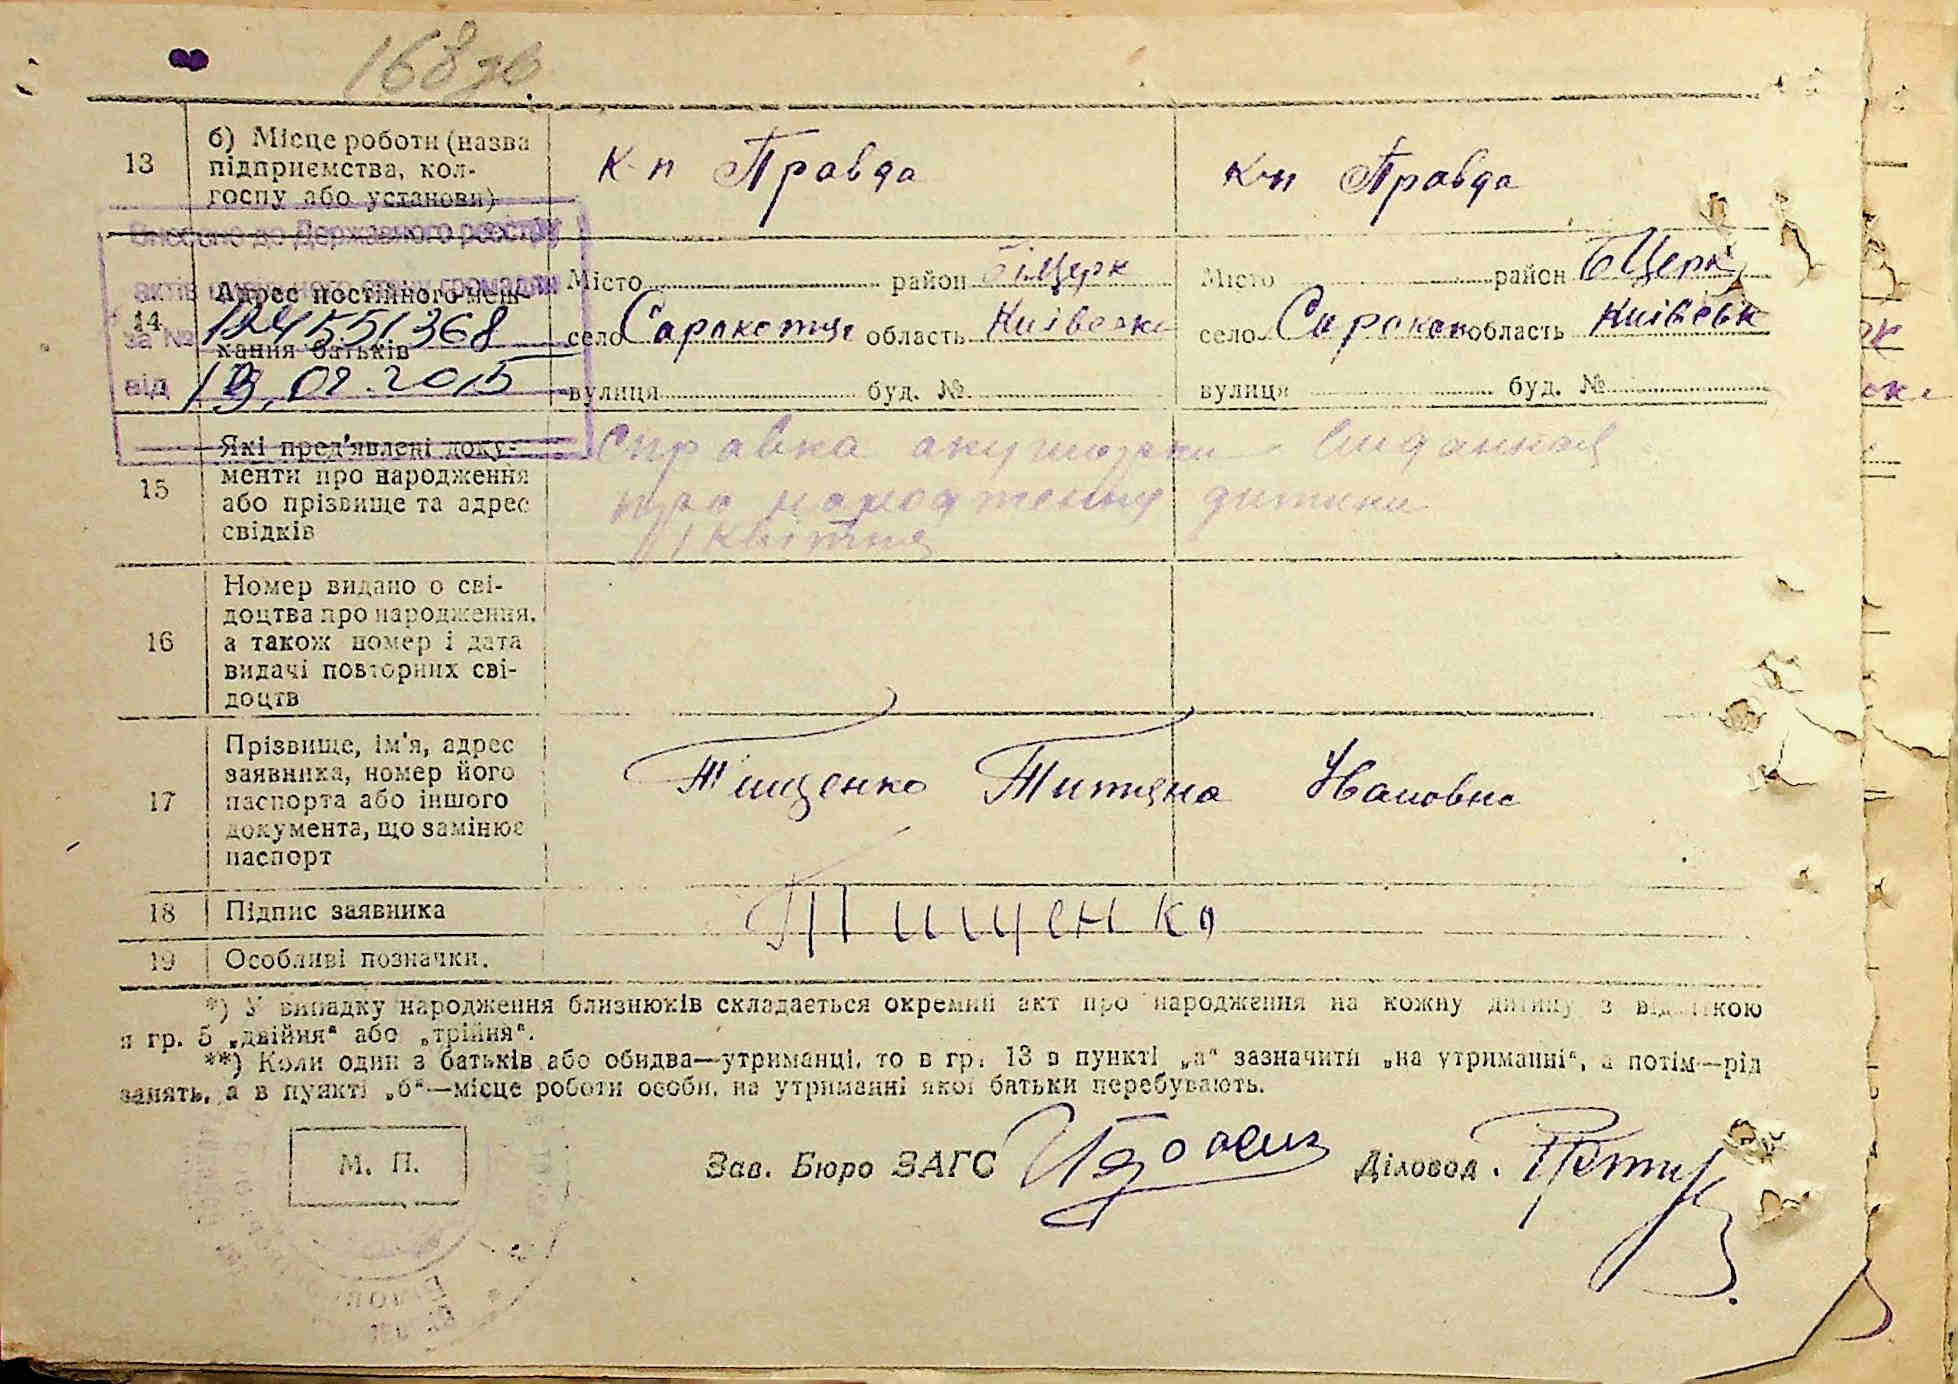 168
13
б) Місце роботи (назва
підприємства, кол-
госпу або установи)
К-п Правда
К-п Правда
Внесено до Державного реєстру
актів цивільного стану громадян
за № 124551368
від 13.02.2015
14
Адрес постійного меш-
кання батьків
Місто район БіЦерк
село область Київськ
вулиця буд. №
Місто район БЦерк
село область Київськ
вулиця буд. №
15
Які пред'явлені доку-
менти про народження
або прізвище та адрес
свідків
Справка акушерки виданная
про народження дитини
1 квітня
16
Номер видано о сві-
доцтва про народження,
а також номер і дата
видачі повторних сві-
доцтв
17
Прізвище, ім'я, адрес
заявника, номер його
паспорта або іншого
документа, що замінює
паспорт
Тищенко Титяна Ивановна
18
Підпис заявника
Тищенко
19
Особливі позначки.
*) У випадку народження близнюків складається окремий акт про народження на кожну дитину з відміткою
в гр. 5 „двійня“ або „трійня“.
**) Коли один з батьків або обидва—утриманці, то в гр. 13 в пункті „а“ зазначити „на утриманні“, а потім—рід
занять, а в пункті „б“—місце роботи особи, на утриманні якої батьки перебувають.
М. П.
Зав. Бюро ЗАГС
Діловод